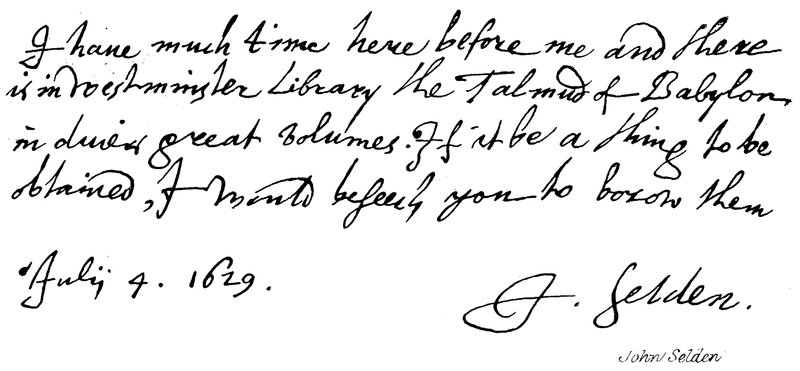 I haue much time here before me and there
is in Westminster Library the Talmud of Babylon
in diuers great volumes. If it be a thing to be
obtained, I would beseech you to borow them
Julij 4. 1629.
J. Selden.
John Selden